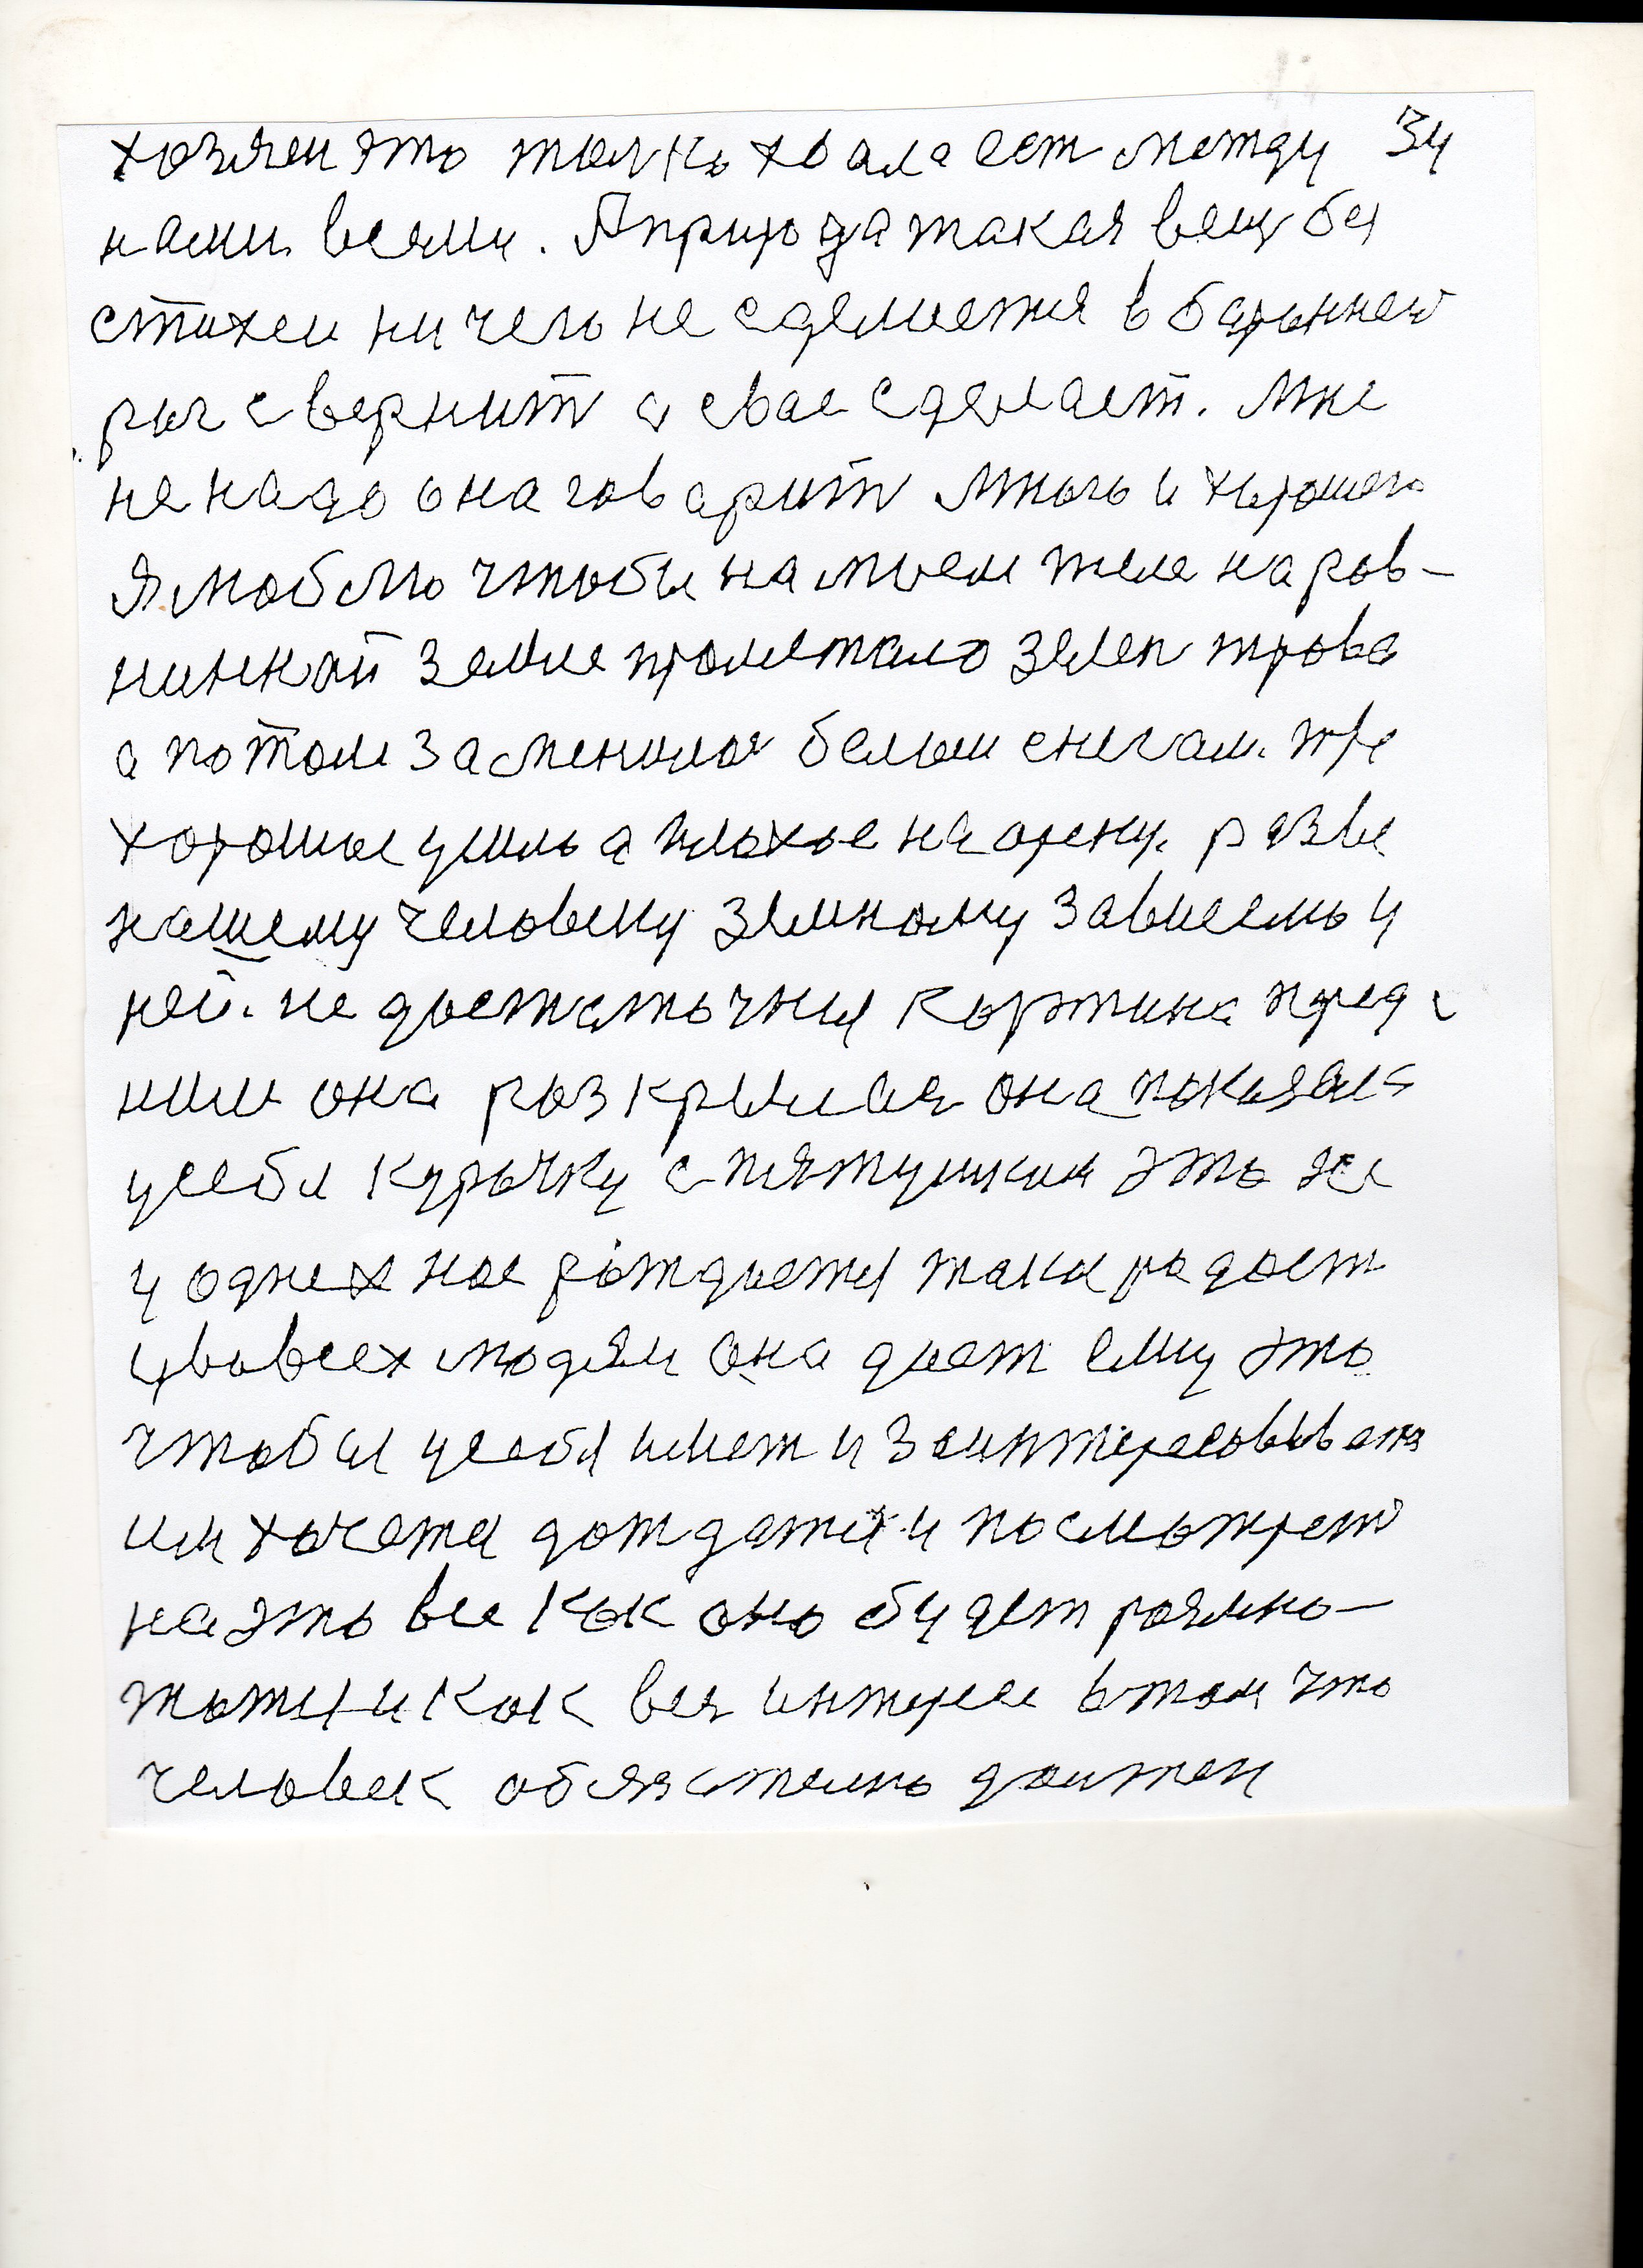 хозяен это толко хвала ест между 34
нами всеми. Я природа такая вещ без
стихеи ничего не сделается в баранней
рог свернит а свае сделает. Мне
не надо она говарит много и хорошего
я люблю чтобы на моем теле на ров-
нинной земле пролетало зелен трова
а потом заменилоя белым снегам. тже
хорошое ушло а плохое на арену. разве
нашему человеку земному зависемо у
ней. не достаточная кортина пред
ним она розкрылася она показала
у себя курычку с пятушким это же
у однех ное рождается така радост
у во всех людям она дает ему это
чтобы у себя имет и заинтересовыватя
им хочется дождатся и посмотрет
на это все как оно будет розмно-
жатся и как вся интерес в том что
человек обязателно должен